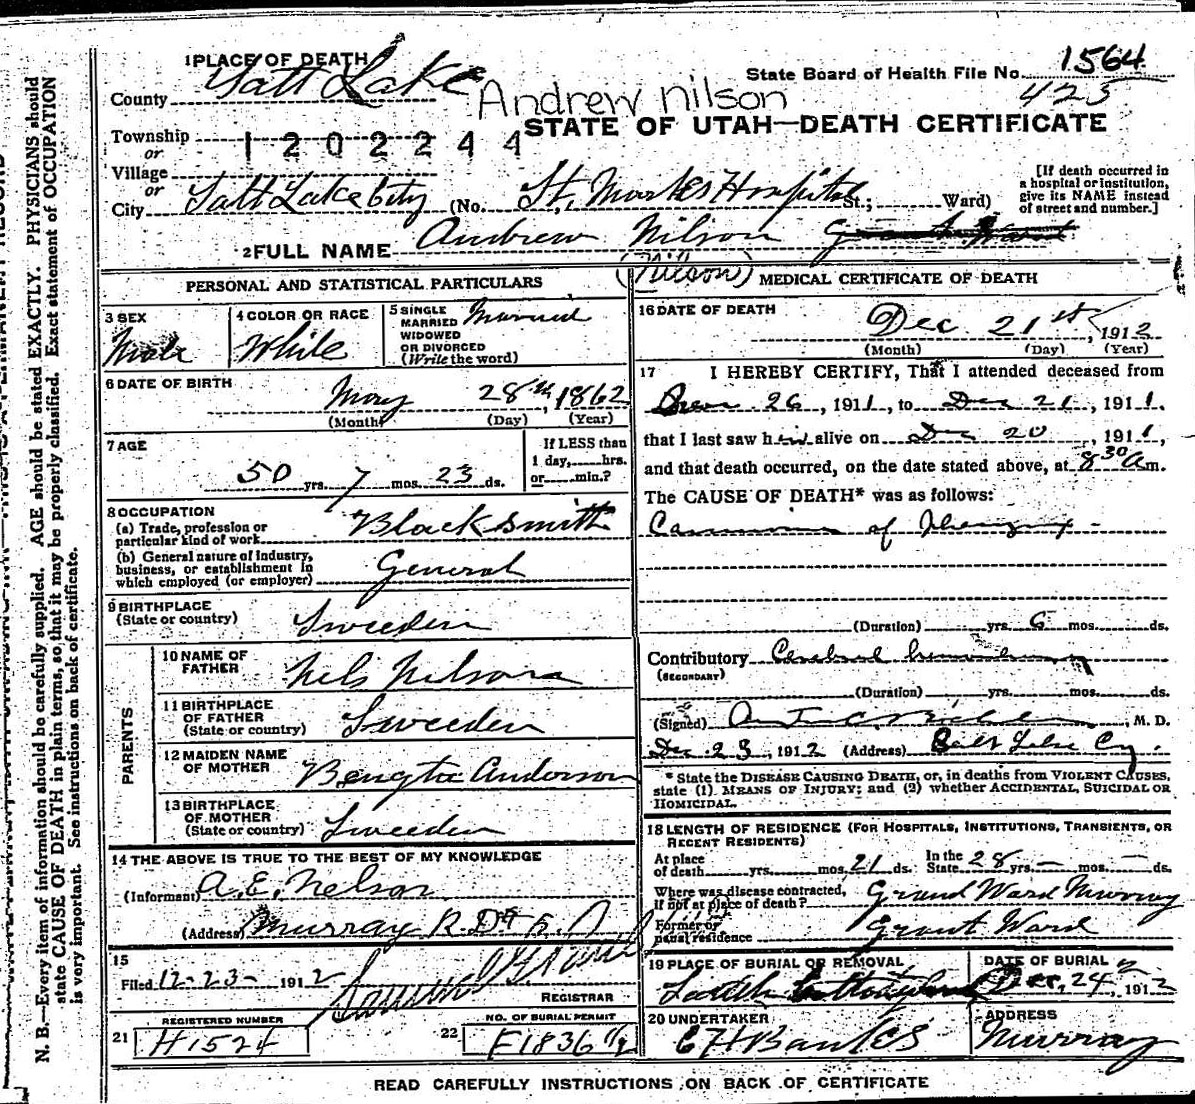 1 PLACE OF DEATH
County Salt Lake
State Board of Health File No. 1564
423
Andrew Nilson
STATE OF UTAH—DEATH CERTIFICATE
Township
or
1 2 0 2 2 4 4
Village
or
City Salt Lake City (No. St. Marks Hospital St.; Ward)
[If death occurred in a hospital or institution, give its NAME instead of street and number.]
2 FULL NAME Andrew Nilson Grant Ward
(Nilson)
PERSONAL AND STATISTICAL PARTICULARS
3 SEX Male
4 COLOR OR RACE White
5 SINGLE MARRIED WIDOWED OR DIVORCED (Write the word) Married
6 DATE OF BIRTH May 28th, 1862
(Month) (Day) (Year)
7 AGE
50 yrs. 7 mos. 23 ds.
If LESS than 1 day, hrs. or min.?
8 OCCUPATION
(a) Trade, profession or particular kind of work Blacksmith
(b) General nature of Industry, business, or establishment in which employed (or employer) General
9 BIRTHPLACE (State or country) Sweeden
PARENTS
10 NAME OF FATHER Nels Nelson
11 BIRTHPLACE OF FATHER (State or country) Sweeden
12 MAIDEN NAME OF MOTHER Bengta Anderson
13 BIRTHPLACE OF MOTHER (State or country) Sweeden
14 THE ABOVE IS TRUE TO THE BEST OF MY KNOWLEDGE
(Informant) A. E. Nelson
(Address) Murray R.D.
15
Filed 12-23- 1912
REGISTRAR
REGISTERED NUMBER
21 H1524
NO. OF BURIAL PERMIT
22 F1836
MEDICAL CERTIFICATE OF DEATH
16 DATE OF DEATH Dec 21st, 1912
(Month) (Day) (Year)
17 I HEREBY CERTIFY, That I attended deceased from
26, 1911, to Dec 21, 1911.
that I last saw him alive on Dec 20, 1911,
and that death occurred, on the date stated above, at 8 30 a m.
The CAUSE OF DEATH* was as follows:
of
(Duration) yrs. 6 mos. ds.
Contributory Cerebral
(SECONDARY)
(Duration) yrs. mos. ds.
(Signed) M. D.
Dec 23, 1912 (Address) Salt Lake Cy.
* State the DISEASE CAUSING DEATH, or, in deaths from VIOLENT CAUSES, state (1) MEANS OF INJURY; and (2) whether ACCIDENTAL, SUICIDAL OR HOMICIDAL.
18 LENGTH OF RESIDENCE (FOR HOSPITALS, INSTITUTIONS, TRANSIENTS, OR RECENT RESIDENTS)
At place of death yrs. mos. 21 ds. In the State 28 yrs. — mos. — ds.
Where was disease contracted, if not at place of death? Grand Ward Murray
Former or usual residence Grant Ward
19 PLACE OF BURIAL OR REMOVAL
DATE OF BURIAL
Dec, 24, 1912
20 UNDERTAKER E H Bankes
ADDRESS Murray
READ CAREFULLY INSTRUCTIONS ON BACK OF CERTIFICATE
N. B.—Every item of information should be carefully supplied. AGE should be stated EXACTLY. PHYSICIANS should
state CAUSE OF DEATH in plain terms, so that it may be properly classified. Exact statement of OCCUPATION
is very important. See instructions on back of certificate.